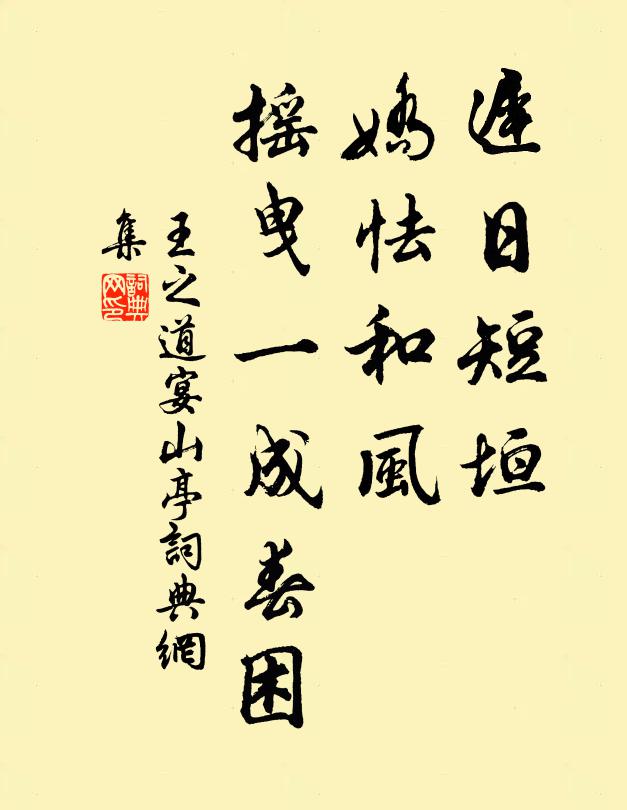 遲日短垣
嬌怯和風
搖曳一成春困
王之道宴山亭詞典網
集
詞典網印